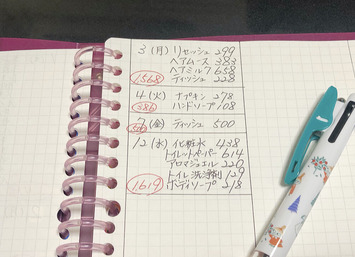 3 (月) リセッシュ 299
ヘアムース 383
ヘアミルク 658
1568 ティッシュ 228
4 (火) ナプキン 278
386 ハンドソープ 108
7 (金) ティッシュ 500
500
12 (水) 化粧水 438
トイレットペーパー 614
アロマジェル 220
トイレ洗浄剤 129
1619 ボディソープ 218